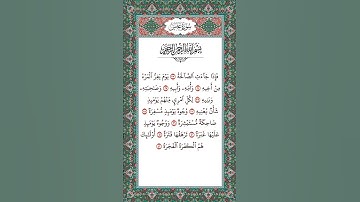 سُورَةُ عَبَسَ
بِسْمِ اللَّهِ الرَّحْمَٰنِ الرَّحِيمِ
فَإِذَا جَاءَتِ الصَّاخَّةُ ۝ يَوْمَ يَفِرُّ الْمَرْءُ
مِنْ أَخِيهِ ۝ وَأُمِّهِ وَأَبِيهِ ۝ وَصَاحِبَتِهِ
وَبَنِيهِ ۝ لِكُلِّ امْرِئٍ مِنْهُمْ يَوْمَئِذٍ
شَأْنٌ يُغْنِيهِ ۝ وُجُوهٌ يَوْمَئِذٍ مُسْفِرَةٌ ۝
ضَاحِكَةٌ مُسْتَبْشِرَةٌ ۝ وَوُجُوهٌ يَوْمَئِذٍ
عَلَيْهَا غَبَرَةٌ ۝ تَرْهَقُهَا قَتَرَةٌ ۝ أُولَٰئِكَ
هُمُ الْكَفَرَةُ الْفَجَرَةُ ۝